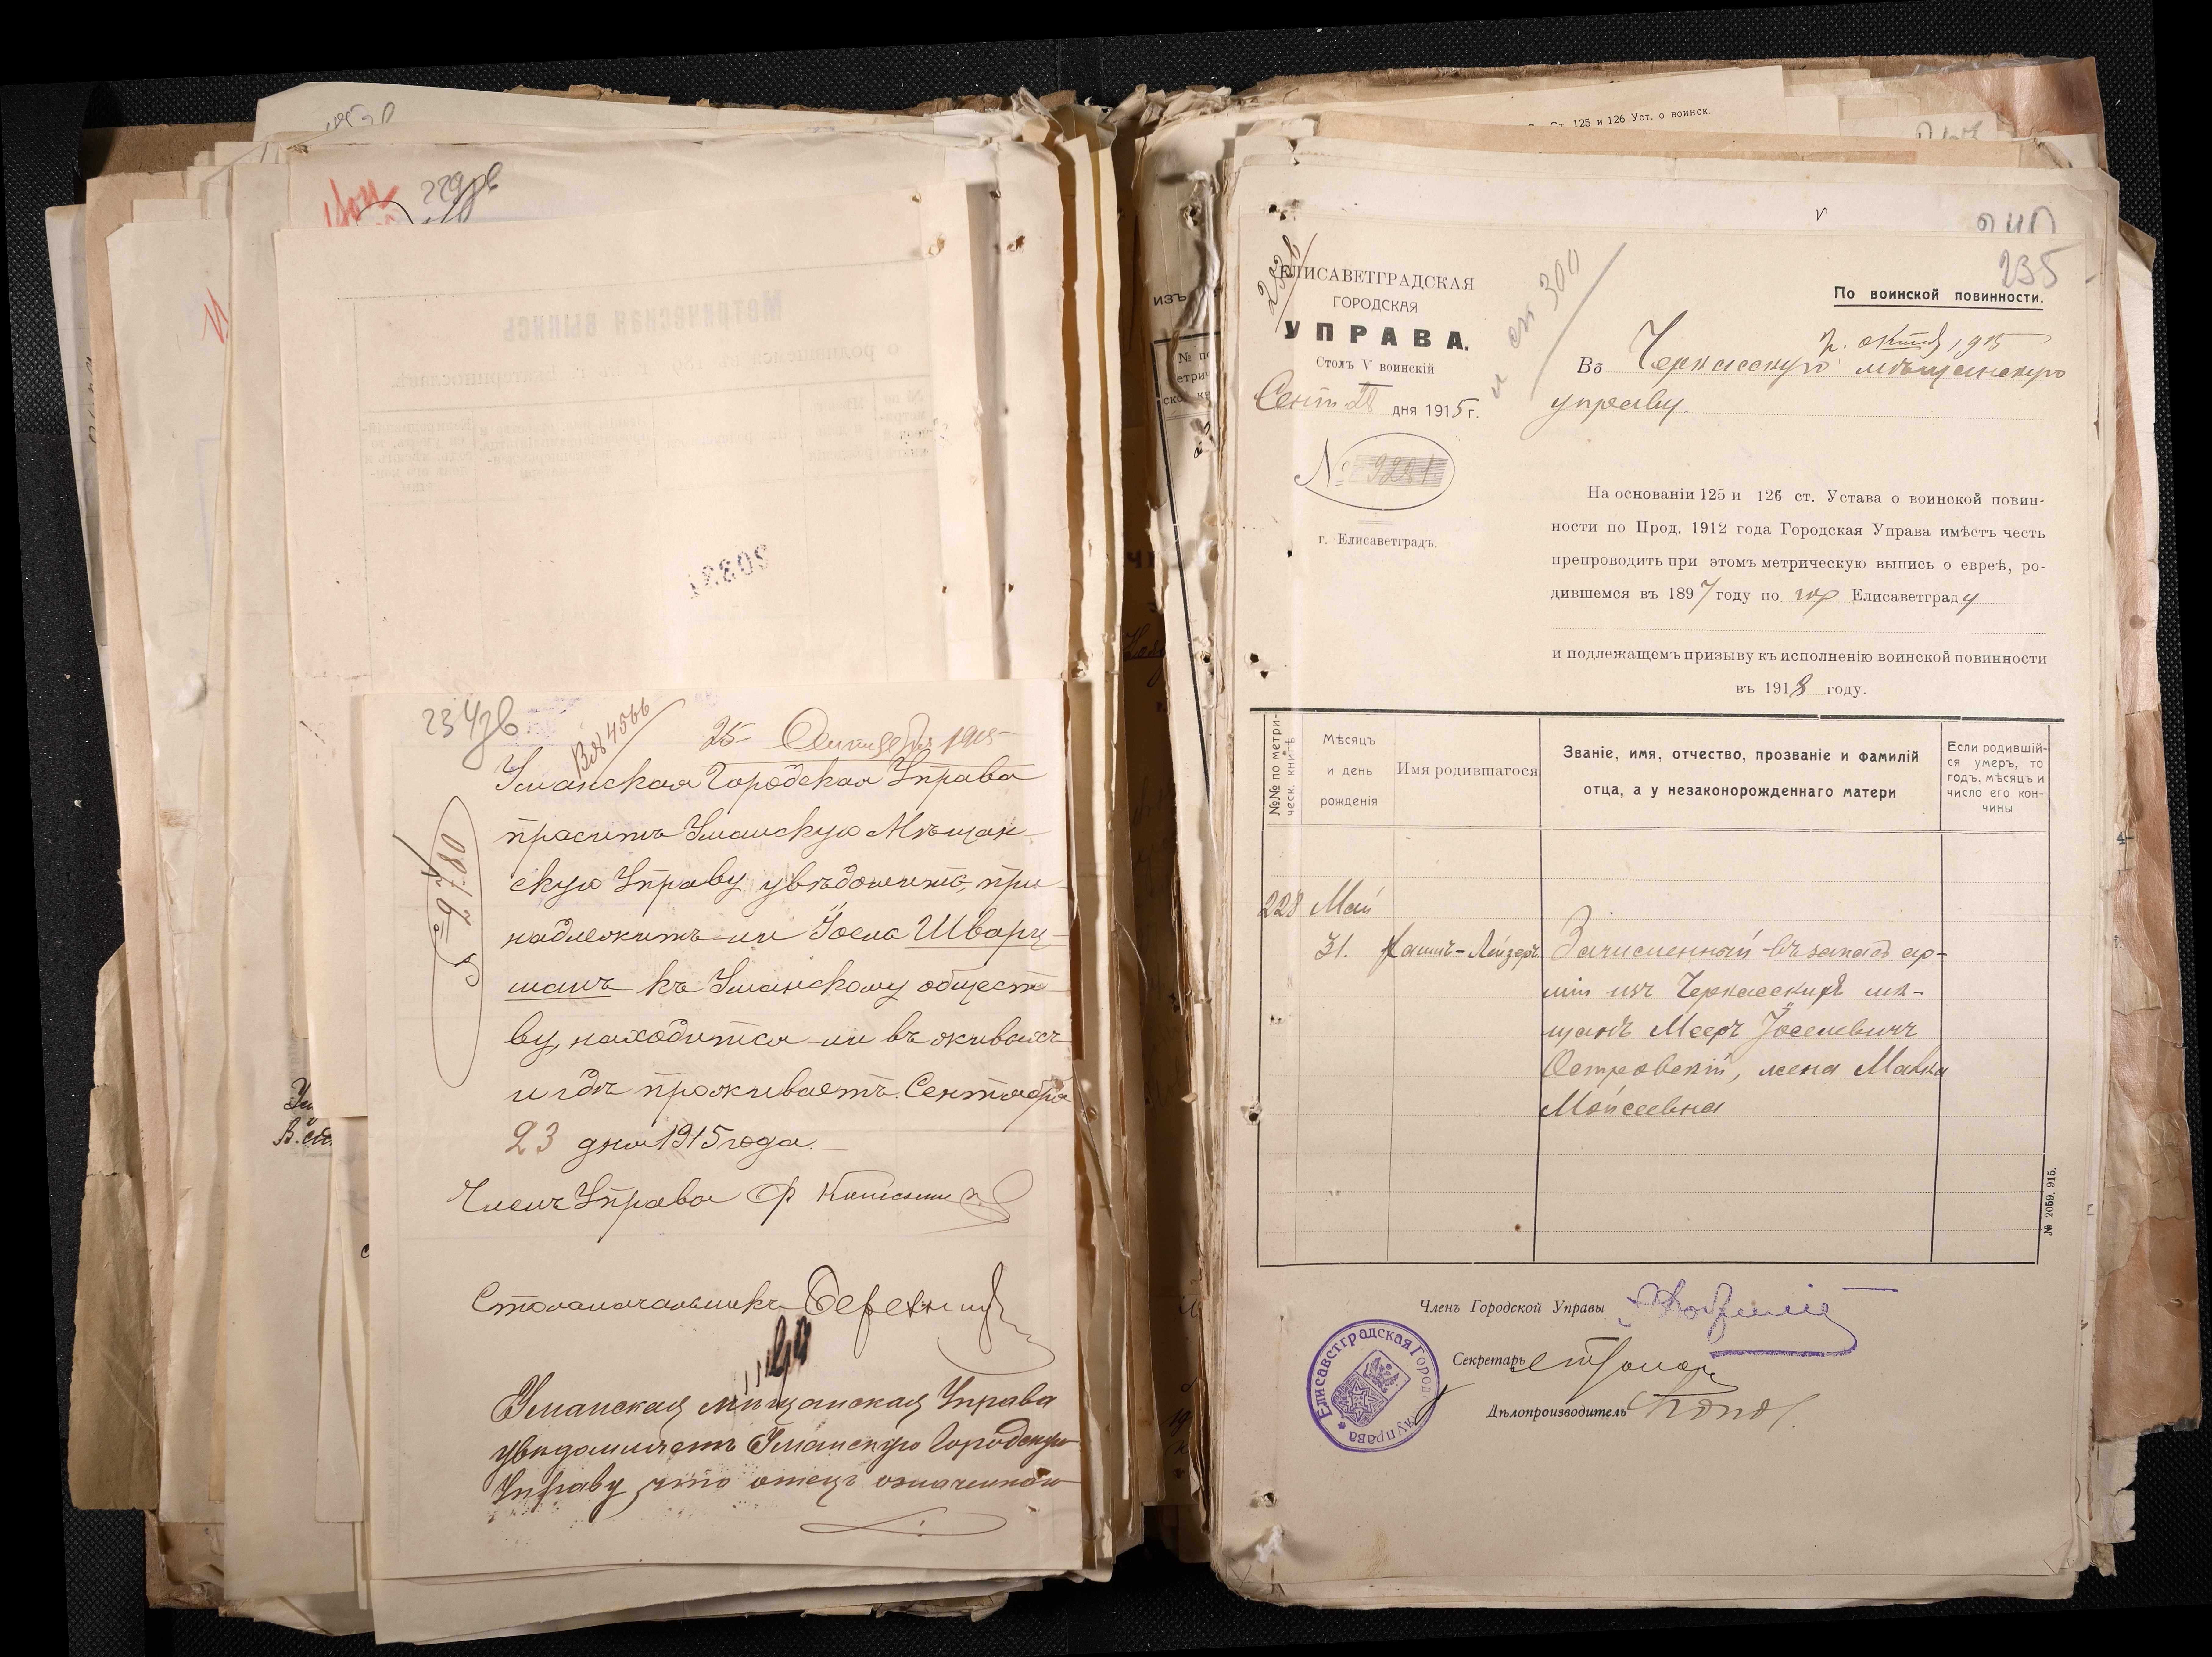 229об
234об
Вх 4566
25 Сентября 1915
Уманская Городская Управа
проситъ Уманскую Мѣщан-
скую Управу увѣдомить, при-
надлежитъ ли Іосель Шварц-
манъ къ Уманскому общест-
ву, находится-ли въ живыхъ
и гдѣ проживаетъ. Сентября
23 дня 1915 года.
№ 9780
Членъ Управы
Столоначальникъ
Уманская мѣщанская Управа
увѣдомляетъ Уманскую Городскую
Управу, что отецъ означеннаго
Метрическая выпись
20331
Ст. 125 и 126 Уст. о воинск.
изъ
235
ЕЛИСАВЕТГРАДСКАЯ
ГОРОДСКАЯ
УПРАВА.
Столъ V воинскій
Сент дня 1915 г.
№ 9221
г. Елисаветградъ.
300
По воинской повинности.
Въ Черкасскую мѣщанскую
управу.
На основаніи 125 и 126 ст. Устава о воинской повин-
ности по Прод. 1912 года Городская Управа имѣетъ честь
препроводить при этомъ метрическую выпись о евреѣ, ро-
дившемся въ 1897 году по гор Елисаветграду
и подлежащемъ призыву къ исполненію воинской повинности
въ 1918 году.
№№ по метри-
ческ. книгѣ
Мѣсяцъ
и день
рожденія
Имя родившагося
Званіе, имя, отчество, прозваніе и фамилій
отца, а у незаконорожденнаго матери
Если родившій-
ся умеръ, то
годъ, мѣсяцъ и
число его кон-
чины
228 Май
31. Хаимъ-Лейзеръ Зачисленный въ запасъ ар-
міи изъ Черкасскихъ мѣ-
щанъ Мееръ Іоселевичъ
Островскій, жена Малка
Мойсеевна
№ 2059. 915.
Членъ Городской Управы
Секретарь
Дѣлопроизводитель
Елисаветградская Город. управа